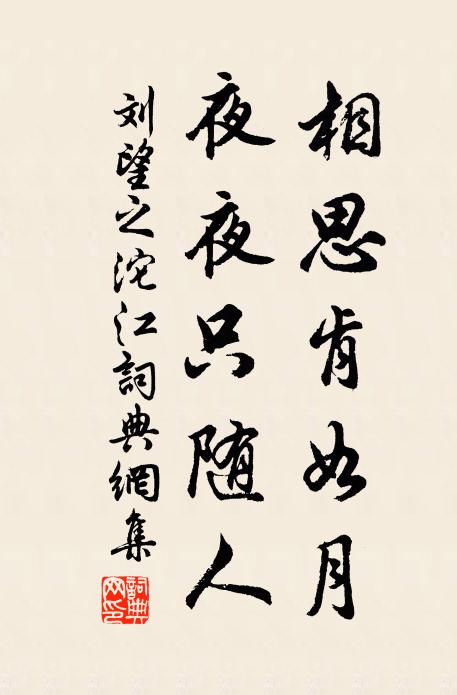 相思肯如月
夜夜只随人
刘望之沱江詞典網集
詞典网印